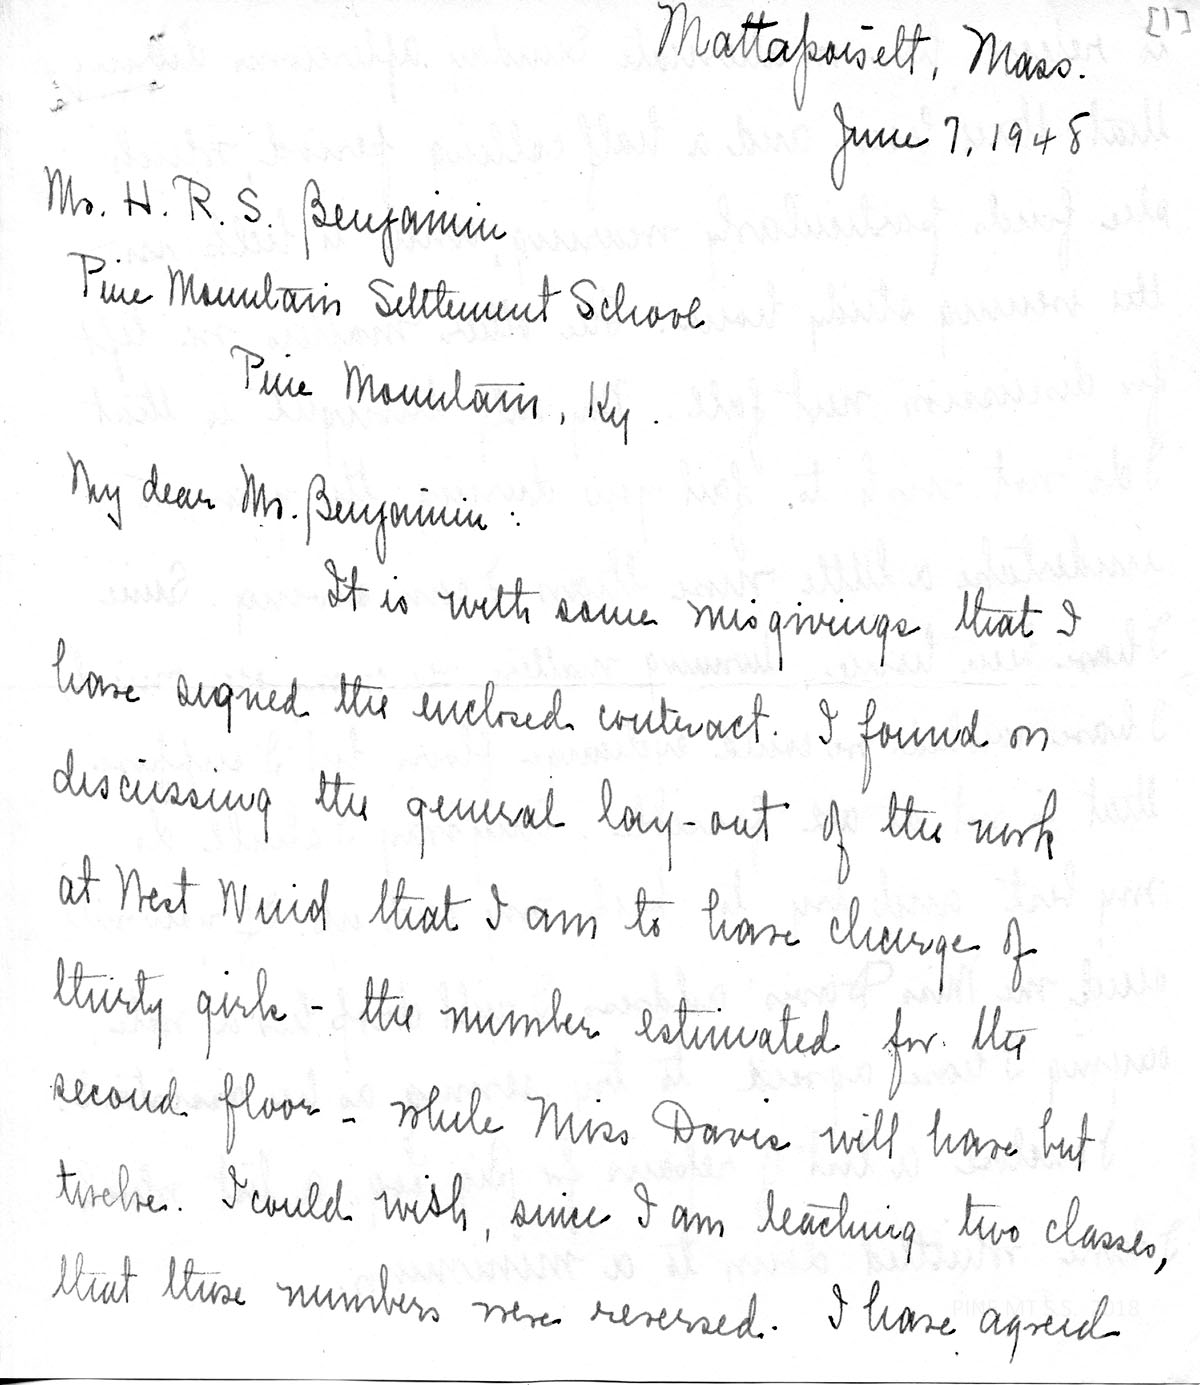 [1]
Mattapoisett, Mass.
June 7, 1948
Mr. H. R. S. Benjamin
Pine Mountain Settlement School
Pine Mountain, Ky.
My dear Mr. Benjamin:
It is with some misgivings that I
have signed the enclosed contract. I found on
discussing the general lay-out of the work
at West Wind that I am to have charge of
thirty girls - the number estimated for the
second floor - while Miss Davis will have but
twelve. I could wish, since I am teaching two classes,
that these numbers were reversed. I have agreed
PINE MT S.S. 2018